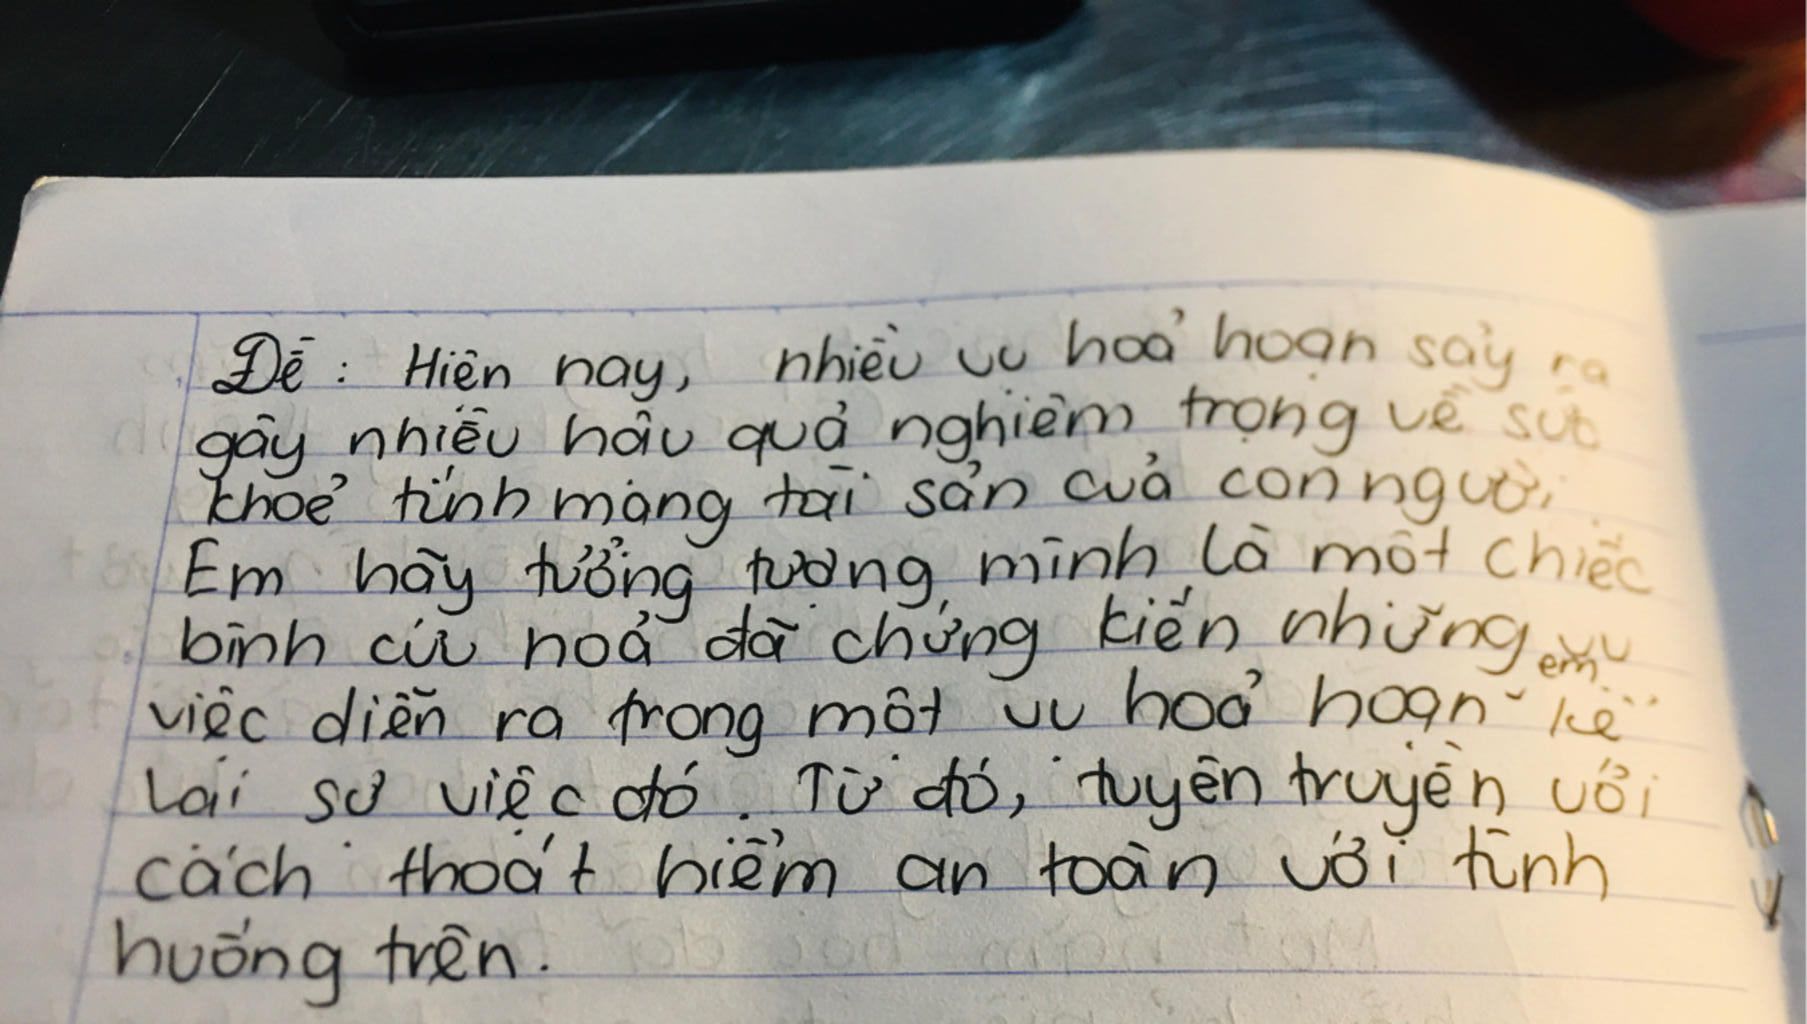 Đề: Hiện nay, nhiều vụ hoả hoạn sảy ra
gây nhiều hậu quả nghiêm trọng về sức
khoẻ tính mạng tài sản của con người,
Em hãy tưởng tượng mình là một chiếc
bình cứu hoả đã chứng kiến những vụ
em
việc diễn ra trong một vụ hoả hoạn kể
lại sự việc đó. Từ đó, tuyên truyền với
cách thoát hiểm an toàn với tình
huống trên.